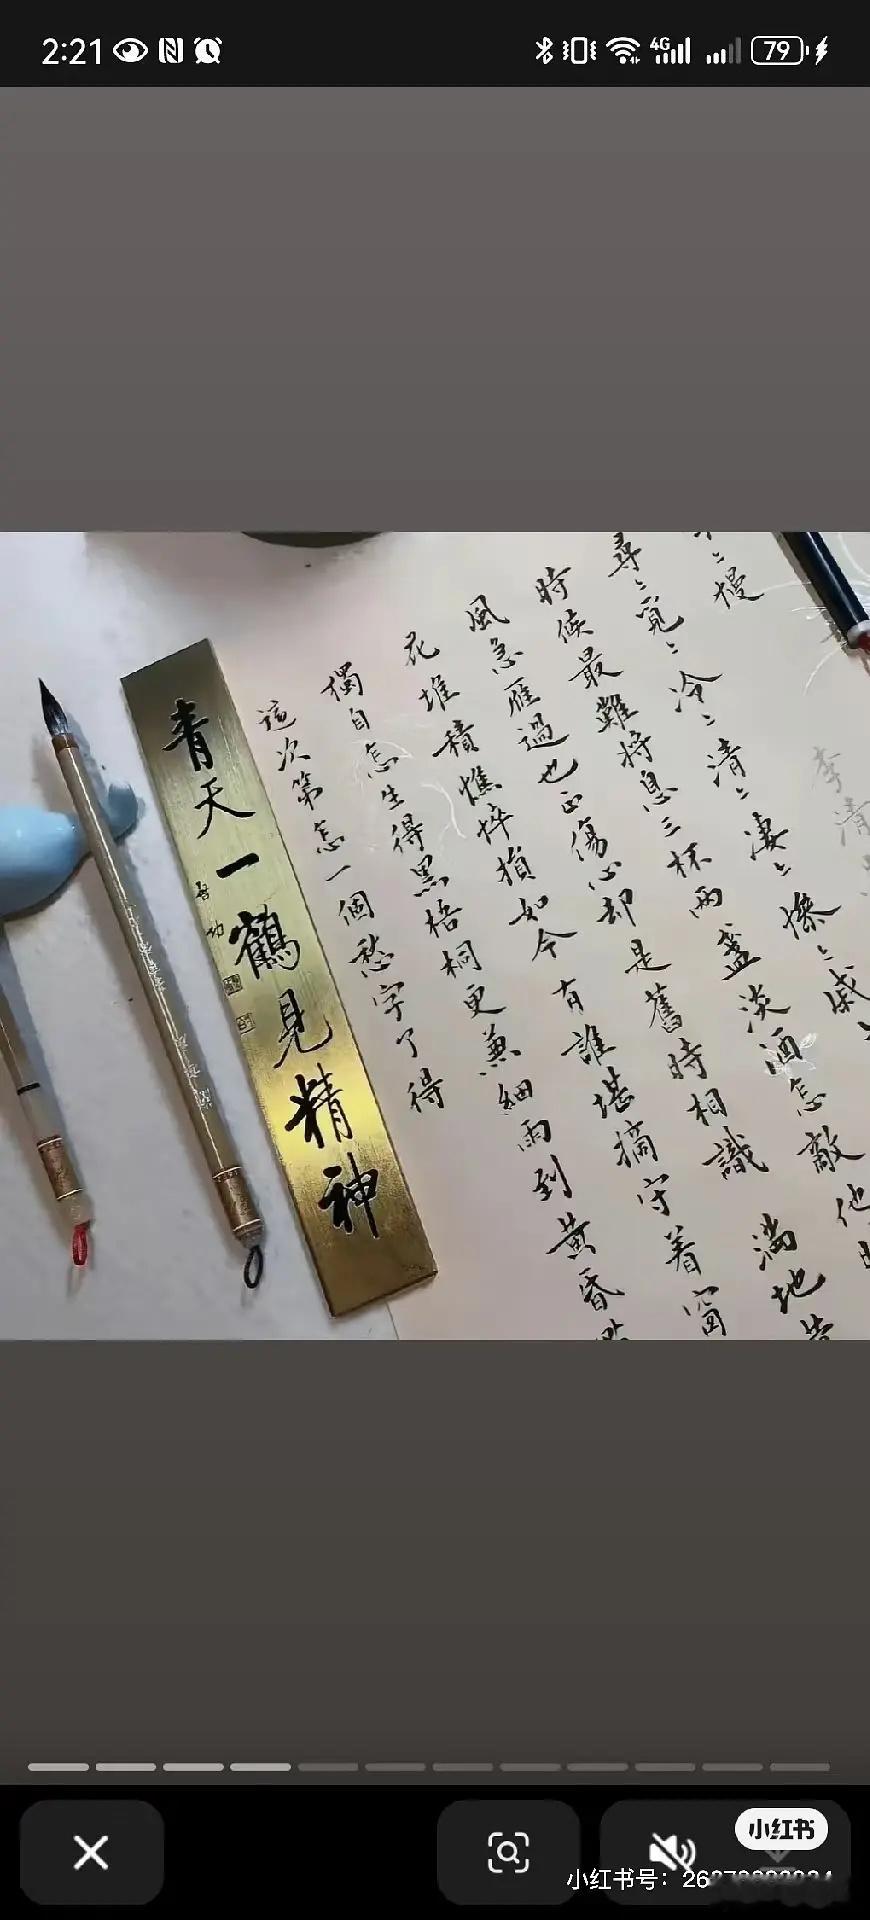 2:21 4G 79
〻慢
李清
尋〻覓〻冷〻清〻凄〻慘〻戚〻
時候最難將息三杯兩盞淡酒怎敵他
風急雁過也正傷心却是舊時相識 滿地
花堆積憔悴損如今有誰堪摘守着窗
獨自怎生得黑梧桐更兼細雨到黃昏
這次第怎一個愁字了得
青天一鶴見精神
启功
小红书
小红书号：